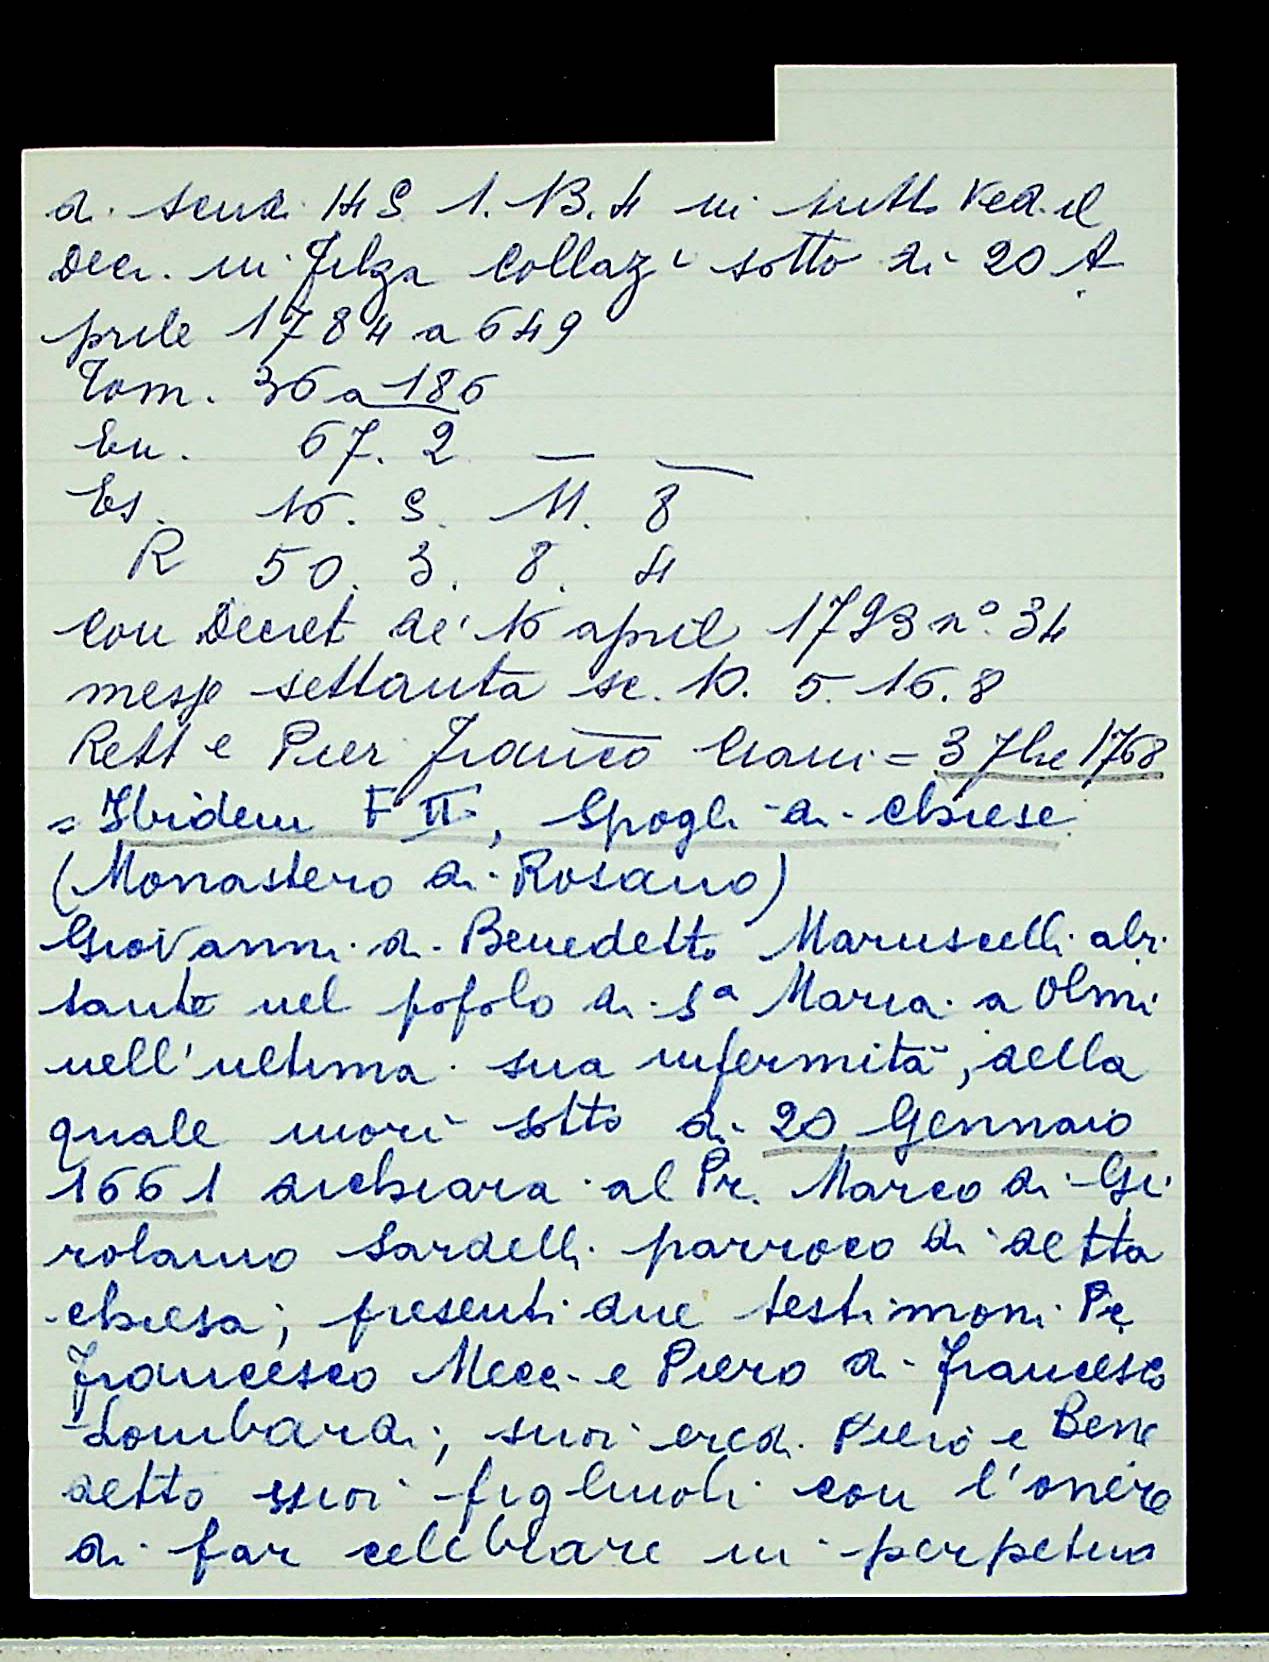 di scudi 149. 1. 13. 4 in tutto Ved. il
Decr. in Filza Collazi sotto dì 20 A
prile 1784 a 649
Tom. 36 a 186
En. 67. 2 — —
Es. 16. 5. 11. 8
R 50. 3. 8. 4
Con Decret de' 16 april 1793 n° 34
messe settanta sc. 10. 5. 16. 8
Rett e Pier Franco = 3 7bre 1768
= Ibidem F II, Spogli di chiese
(Monastero di Rosano)
Giovanni di Benedetto Maruscelli abi
tante nel popolo di Sa Maria a Olmi
nell'ultima sua infermità, della
quale morì sotto dì 20 Gennaio
1661 dichiara al Pr. Marco di Gi
rolamo Sardelli parroco di detta
chiesa; presenti due testimoni Pr
Francesco Mecci e Piero di Francesco
Lombardi; suoi eredi Piero e Bene
detto suoi figliuoli con l'onere
di far celebrare in perpetuo